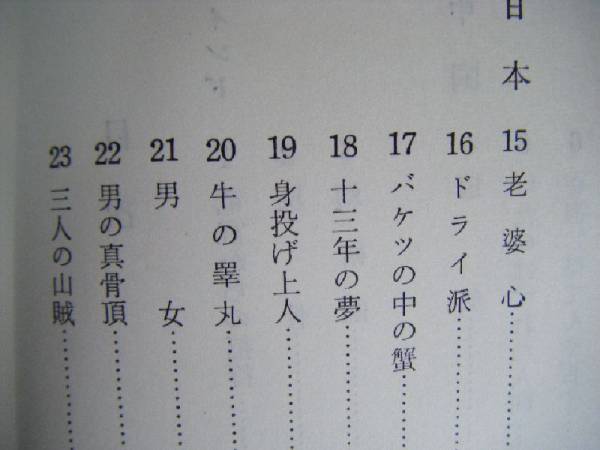 日本
15 老婆心
16 ドライ派
17 バケツの中の蟹
18 十三年の夢
19 身投げ上人
20 牛の睾丸
21 男女
22 男の真骨頂
23 三人の山賊